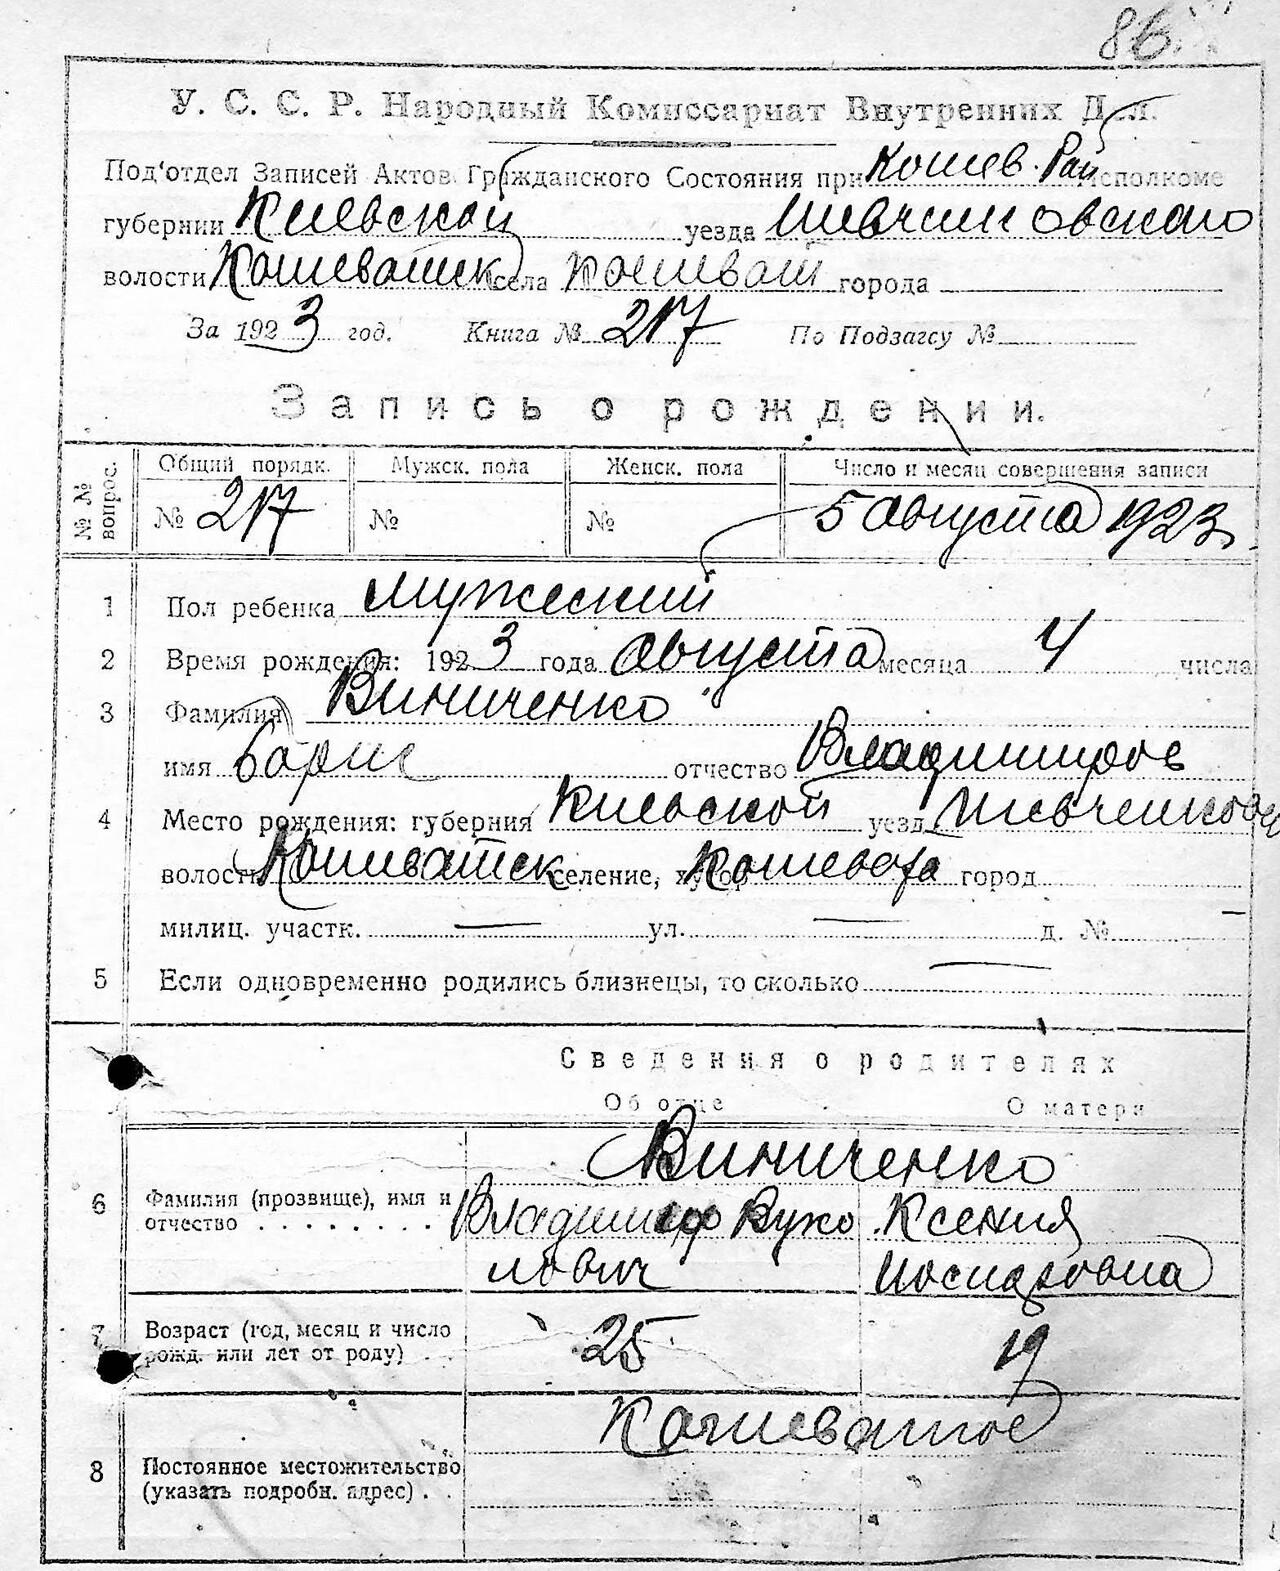 86
У. С. С. Р. Народный Комиссариат Внутренних Дел.
Под'отдел Записей Актов Гражданского Состояния при Кошев. Рай исполкоме
губернии Киевской уезда Шевченковского
волости Кошеватск села Кошеват города
За 1923 год. Книга № 217 По Подзагсу №
Запись о рождении.
№ № вопрос. Общий порядк. Мужск. пола Женск. пола Число и месяц совершения записи
№ 217 № № 5 августа 1923
1 Пол ребенка мужеский
2 Время рождения: 1923 года августа месяца 4 числа
3 Фамилия Виниченко
имя Борис отчество Владимиров
4 Место рождения: губерния Киевской уезд Шевченковск
волость Кошеватск селение, хутор Кошевата город
милиц. участк. — ул. — д. № —
5 Если одновременно родились близнецы, то сколько —
Сведения о родителях
Об отце О матери
Виниченко
6 Фамилия (прозвище), имя и отчество . . . . . . . . Владимир Вуко Ксения
лович
7 Возраст (год, месяц и число рожд. или лет от роду) . . 25 19
Кошеватое
8 Постоянное местожительство
(указать подробн. адрес) . .